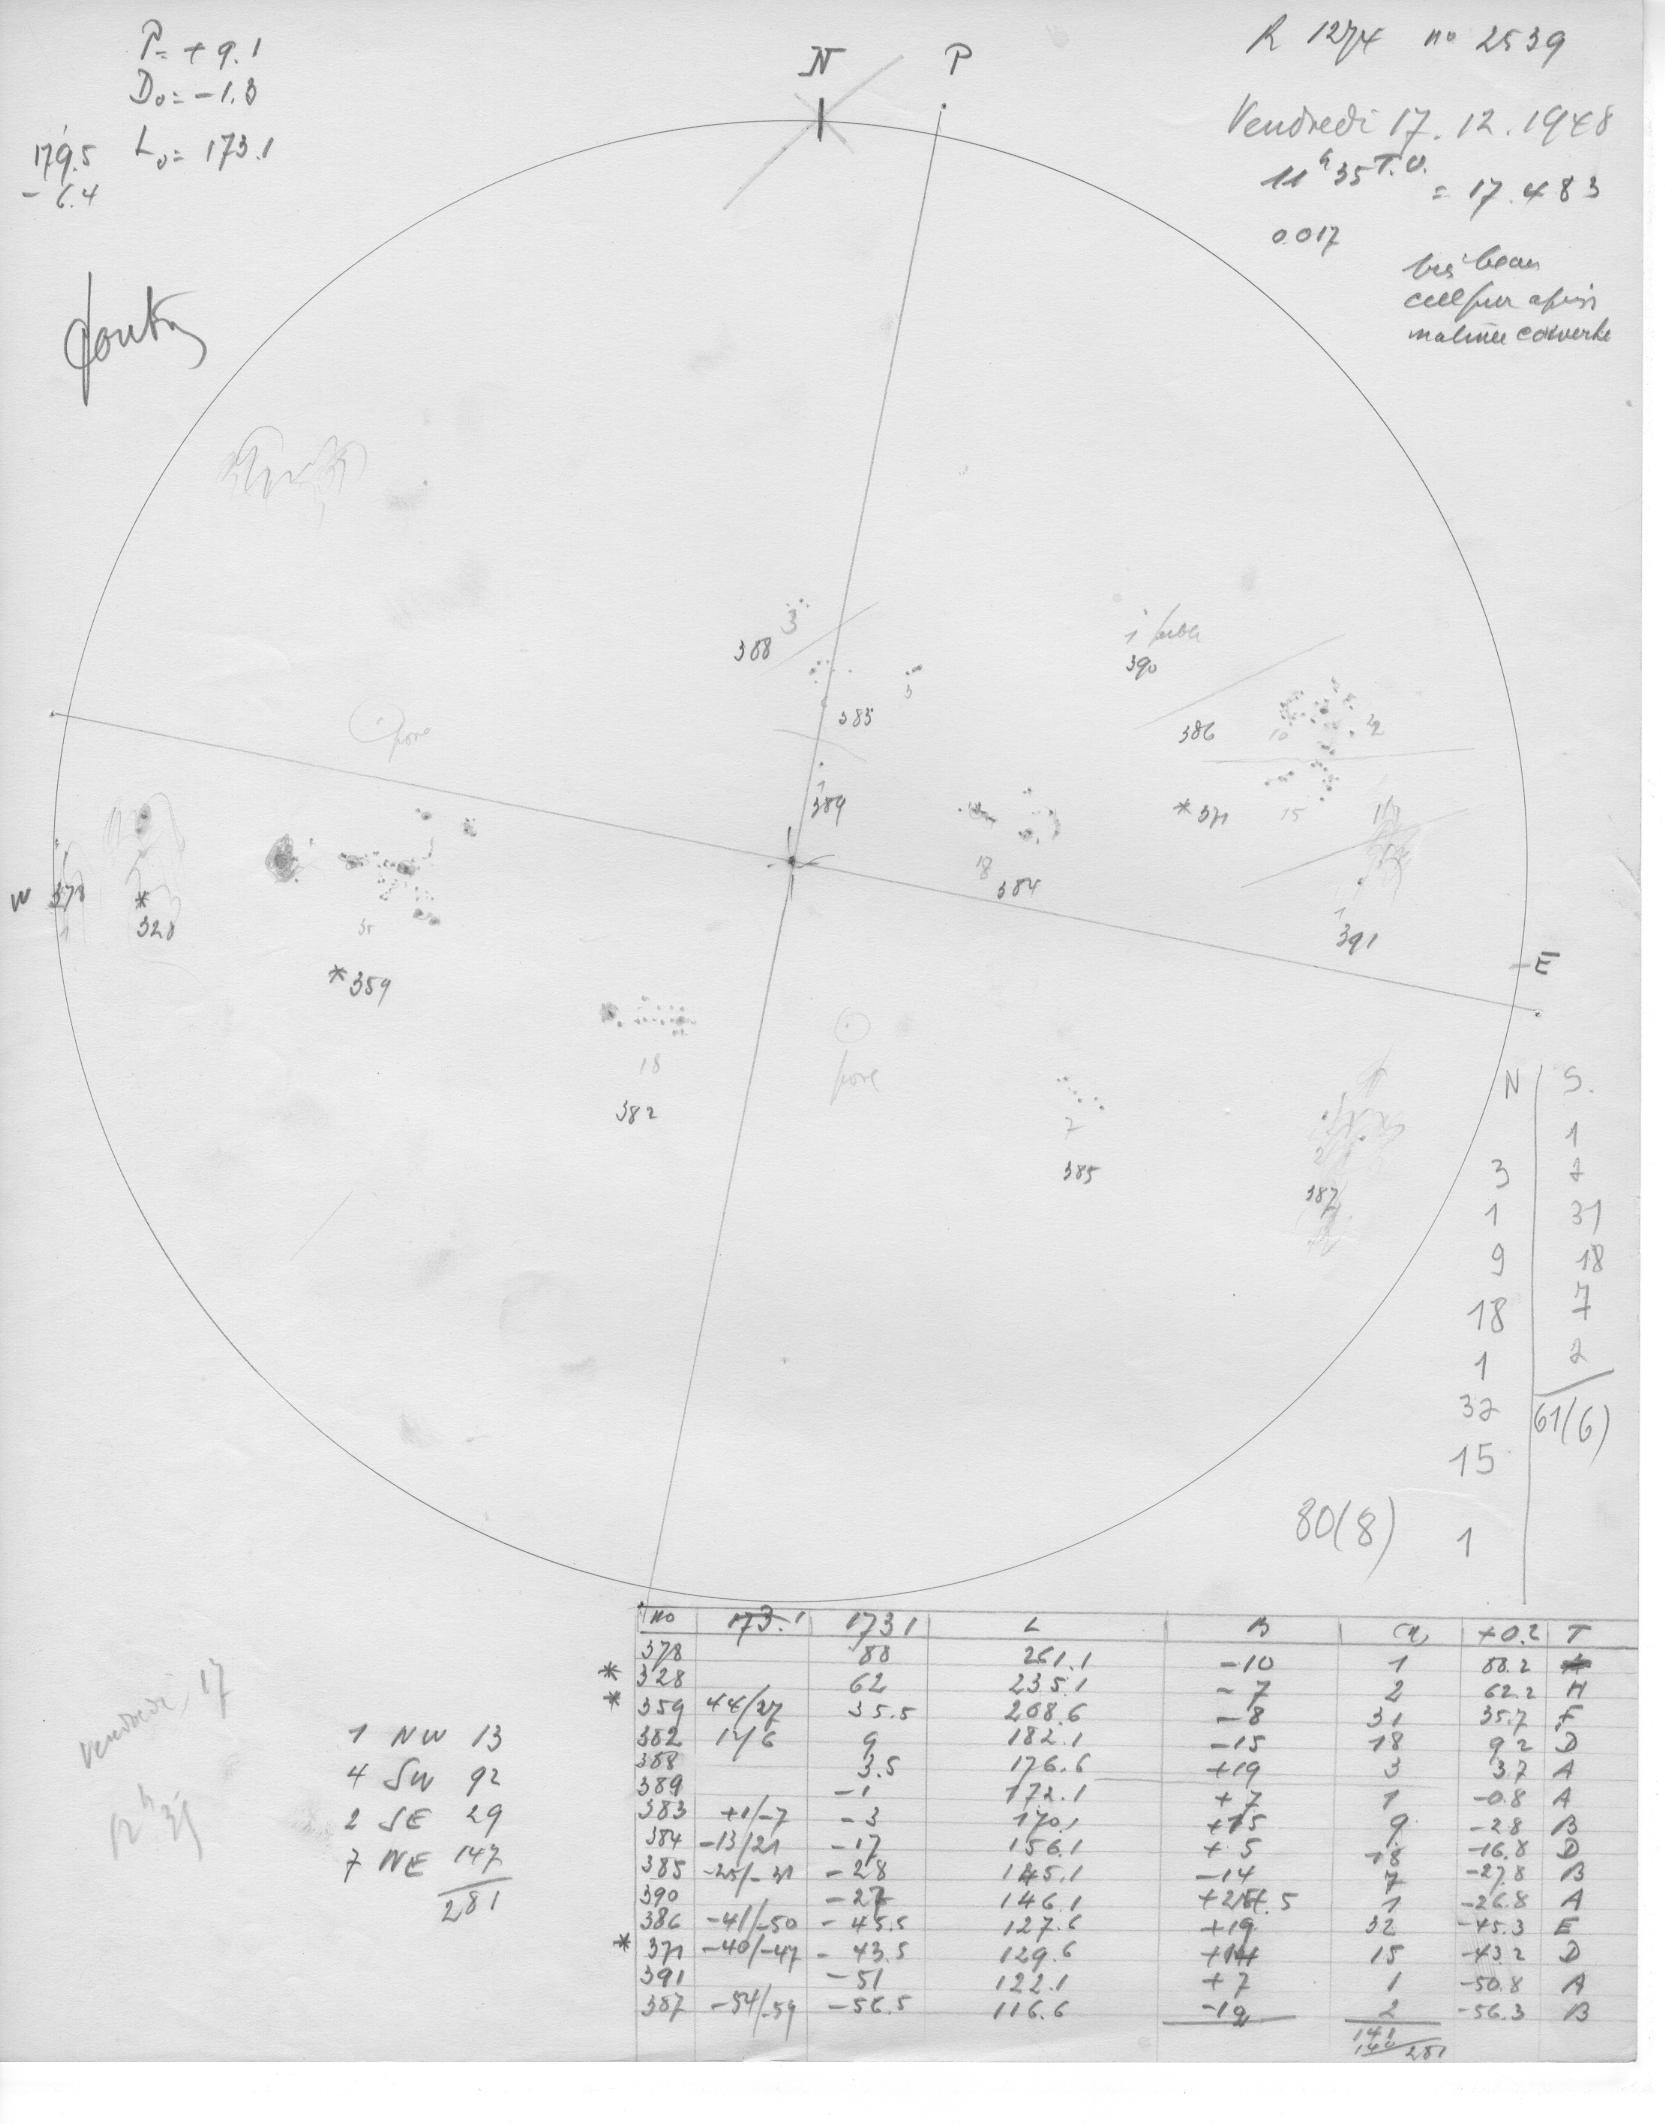 P = + 9.1
D₀ = -1.3
L₀ = 173.1
179.5
- 6.4
N
P
R 1274 no 2539
Vendredi 17.12.1948
11ʰ35 T.U.
= 17.483
0.017
très beau
ciel pur après
matinée couverte
3
388
383
3
1
389
1 faible
390
386
10
22
* 371
15
pore
W
378
1
*
328
35
* 359
18
384
1
391
E
18
382
pore
7
385
2
387
N S.
1
3 2
1 31
9 18
18 7
1 2
32 61(6)
15
80(8) 1
no 173.1 173.1 L B +0.2 T
378 88 261.1 -10 1 88.2
* 328 62 235.1 -7 2 62.2 H
* 359 44/27 35.5 208.6 -8 31 35.7 F
382 12/6 9 182.1 -15 18 9.2 D
388 3.5 176.6 +19 3 3.7 A
389 -1 172.1 +7 1 -0.8 A
383 +1/-7 -3 170.1 +15 9 -2.8 B
384 -13/21 -17 156.1 +5 18 -16.8 D
385 -25/-31 -28 145.1 -14 7 -27.8 B
390 -27 146.1 1 -26.8 A
386 -41/-50 -45.5 127.6 +19 32 -45.3 E
* 371 -40/-47 -43.5 129.6 +14 15 -43.2 D
391 -51 122.1 +7 1 -50.8 A
387 -54/-59 -56.5 116.6 -19 2 -56.3 B
141
140 281
Vendredi, 17
12ʰ35
1 NW 13
4 SW 92
2 SE 29
7 NE 147
281